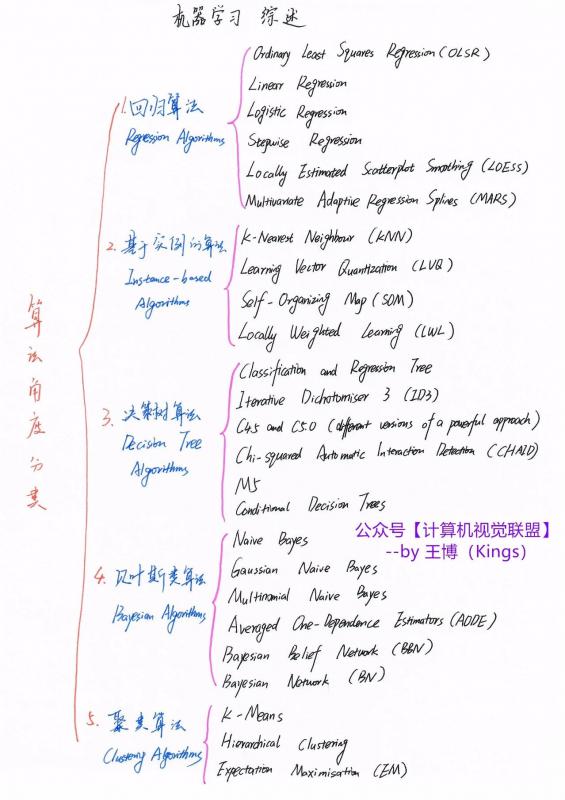 机器学习 综述
算法角度分类
1. 回归算法
Regression Algorithms
Ordinary Least Squares Regression (OLSR)
Linear Regression
Logistic Regression
Stepwise Regression
Locally Estimated Scatterplot Smoothing (LOESS)
Multivariate Adaptive Regression Splines (MARS)
2. 基于实例的算法
Instance-based
Algorithms
K-Nearest Neighbour (KNN)
Learning Vector Quantization (LVQ)
Self-Organizing Map (SOM)
Locally Weighted Learning (LWL)
3. 决策树算法
Decision Tree
Algorithms
Classification and Regression Tree
Iterative Dichotomiser 3 (ID3)
C4.5 and C5.0 (different versions of a powerful approach)
Chi-squared Automatic Interaction Detection (CHAID)
M5
Conditional Decision Trees
公众号【计算机视觉联盟】
--by 王博（Kings）
4. 贝叶斯类算法
Bayesian Algorithms
Naive Bayes
Gaussian Naive Bayes
Multinomial Naive Bayes
Averaged One-Dependence Estimators (AODE)
Bayesian Belief Network (BBN)
Bayesian Network (BN)
5. 聚类算法
Clustering Algorithms
K-Means
Hierarchical Clustering
Expectation Maximisation (EM)